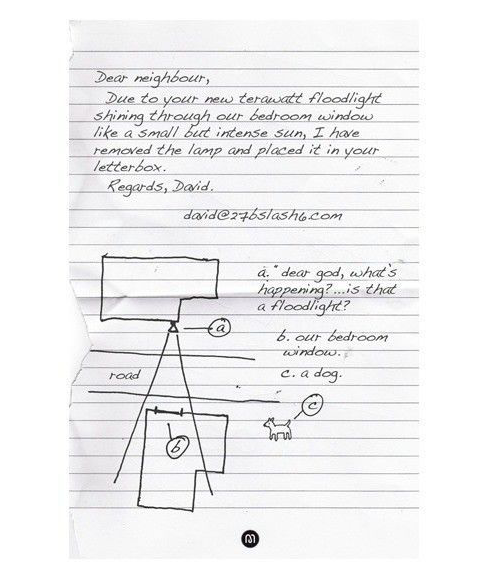 Dear neighbour,
Due to your new terawatt floodlight
shining through our bedroom window
like a small but intense sun, I have
removed the lamp and placed it in your
letterbox.
Regards, David.
david@27bslash6.com
a. "dear god, what's
happening?...is that
a floodlight?
b. our bedroom
window.
c. a dog.
a
road
c
b
m